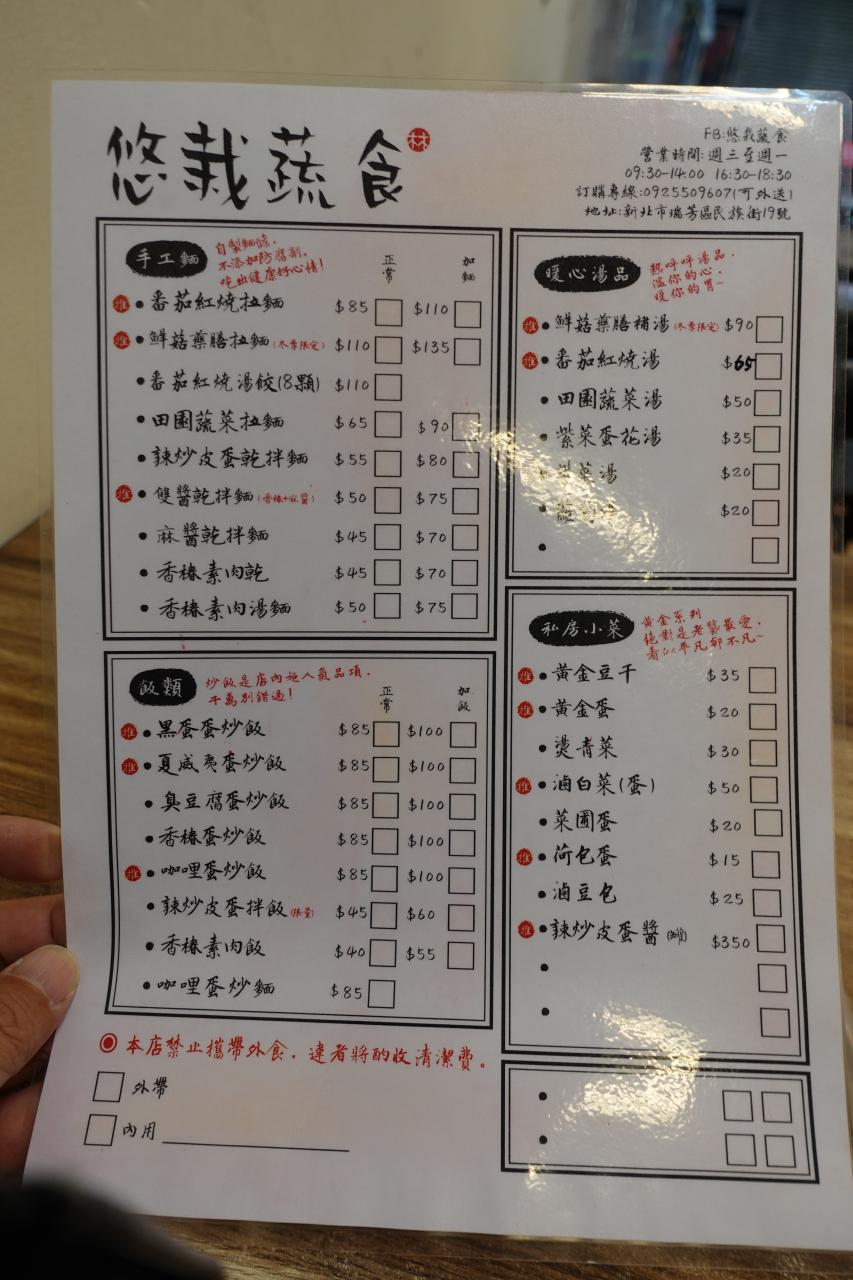 悠栽蔬食
林
FB:悠栽蔬食
營業時間:週三至週一
09:30-14:00 16:30-18:30
訂購專線:0925509607(可外送)
地址:新北市瑞芳區民族街19號
手工麵
自製麵條,
不添加防腐劑,
吃出健康好心情!
正常
加麵
推 • 番茄紅燒拉麵 $85 $110
推 • 鮮菇藥膳拉麵(冬季限定) $110 $135
• 番茄紅燒湯餃(8顆) $110
• 田園蔬菜拉麵 $65 $90
• 辣炒皮蛋乾拌麵 $55 $80
推 • 雙醬乾拌麵(香椿+麻醬) $50 $75
• 麻醬乾拌麵 $45 $70
• 香椿素肉乾 $45 $70
• 香椿素肉湯麵 $50 $75
飯類
炒飯是店內超人氣品項,
千萬別錯過!
正常
加飯
推 • 黑蛋蛋炒飯 $85 $100
推 • 夏威夷蛋炒飯 $85 $100
• 臭豆腐蛋炒飯 $85 $100
• 香椿蛋炒飯 $85 $100
推 • 咖哩蛋炒飯 $85 $100
• 辣炒皮蛋拌飯(限量) $45 $60
• 香椿素肉飯 $40 $55
• 咖哩蛋炒麵 $85
本店禁止攜帶外食,違者將酌收清潔費。
外帶
內用
暖心湯品
熱呼呼湯品,
溫你的心,
暖你的胃~
推 • 鮮菇藥膳補湯(冬季限定) $90
推 • 番茄紅燒湯 $65
• 田園蔬菜湯 $50
• 紫菜蛋花湯 $35
菜湯 $20
$20
私房小菜
黃金系列
絕對是老饕最愛,
看似平凡卻不凡~
推 • 黃金豆干 $35
推 • 黃金蛋 $20
• 燙青菜 $30
推 • 滷白菜(蛋) $50
• 菜圃蛋 $20
推 • 荷包蛋 $15
• 滷豆包 $25
推 • 辣炒皮蛋醬 $350